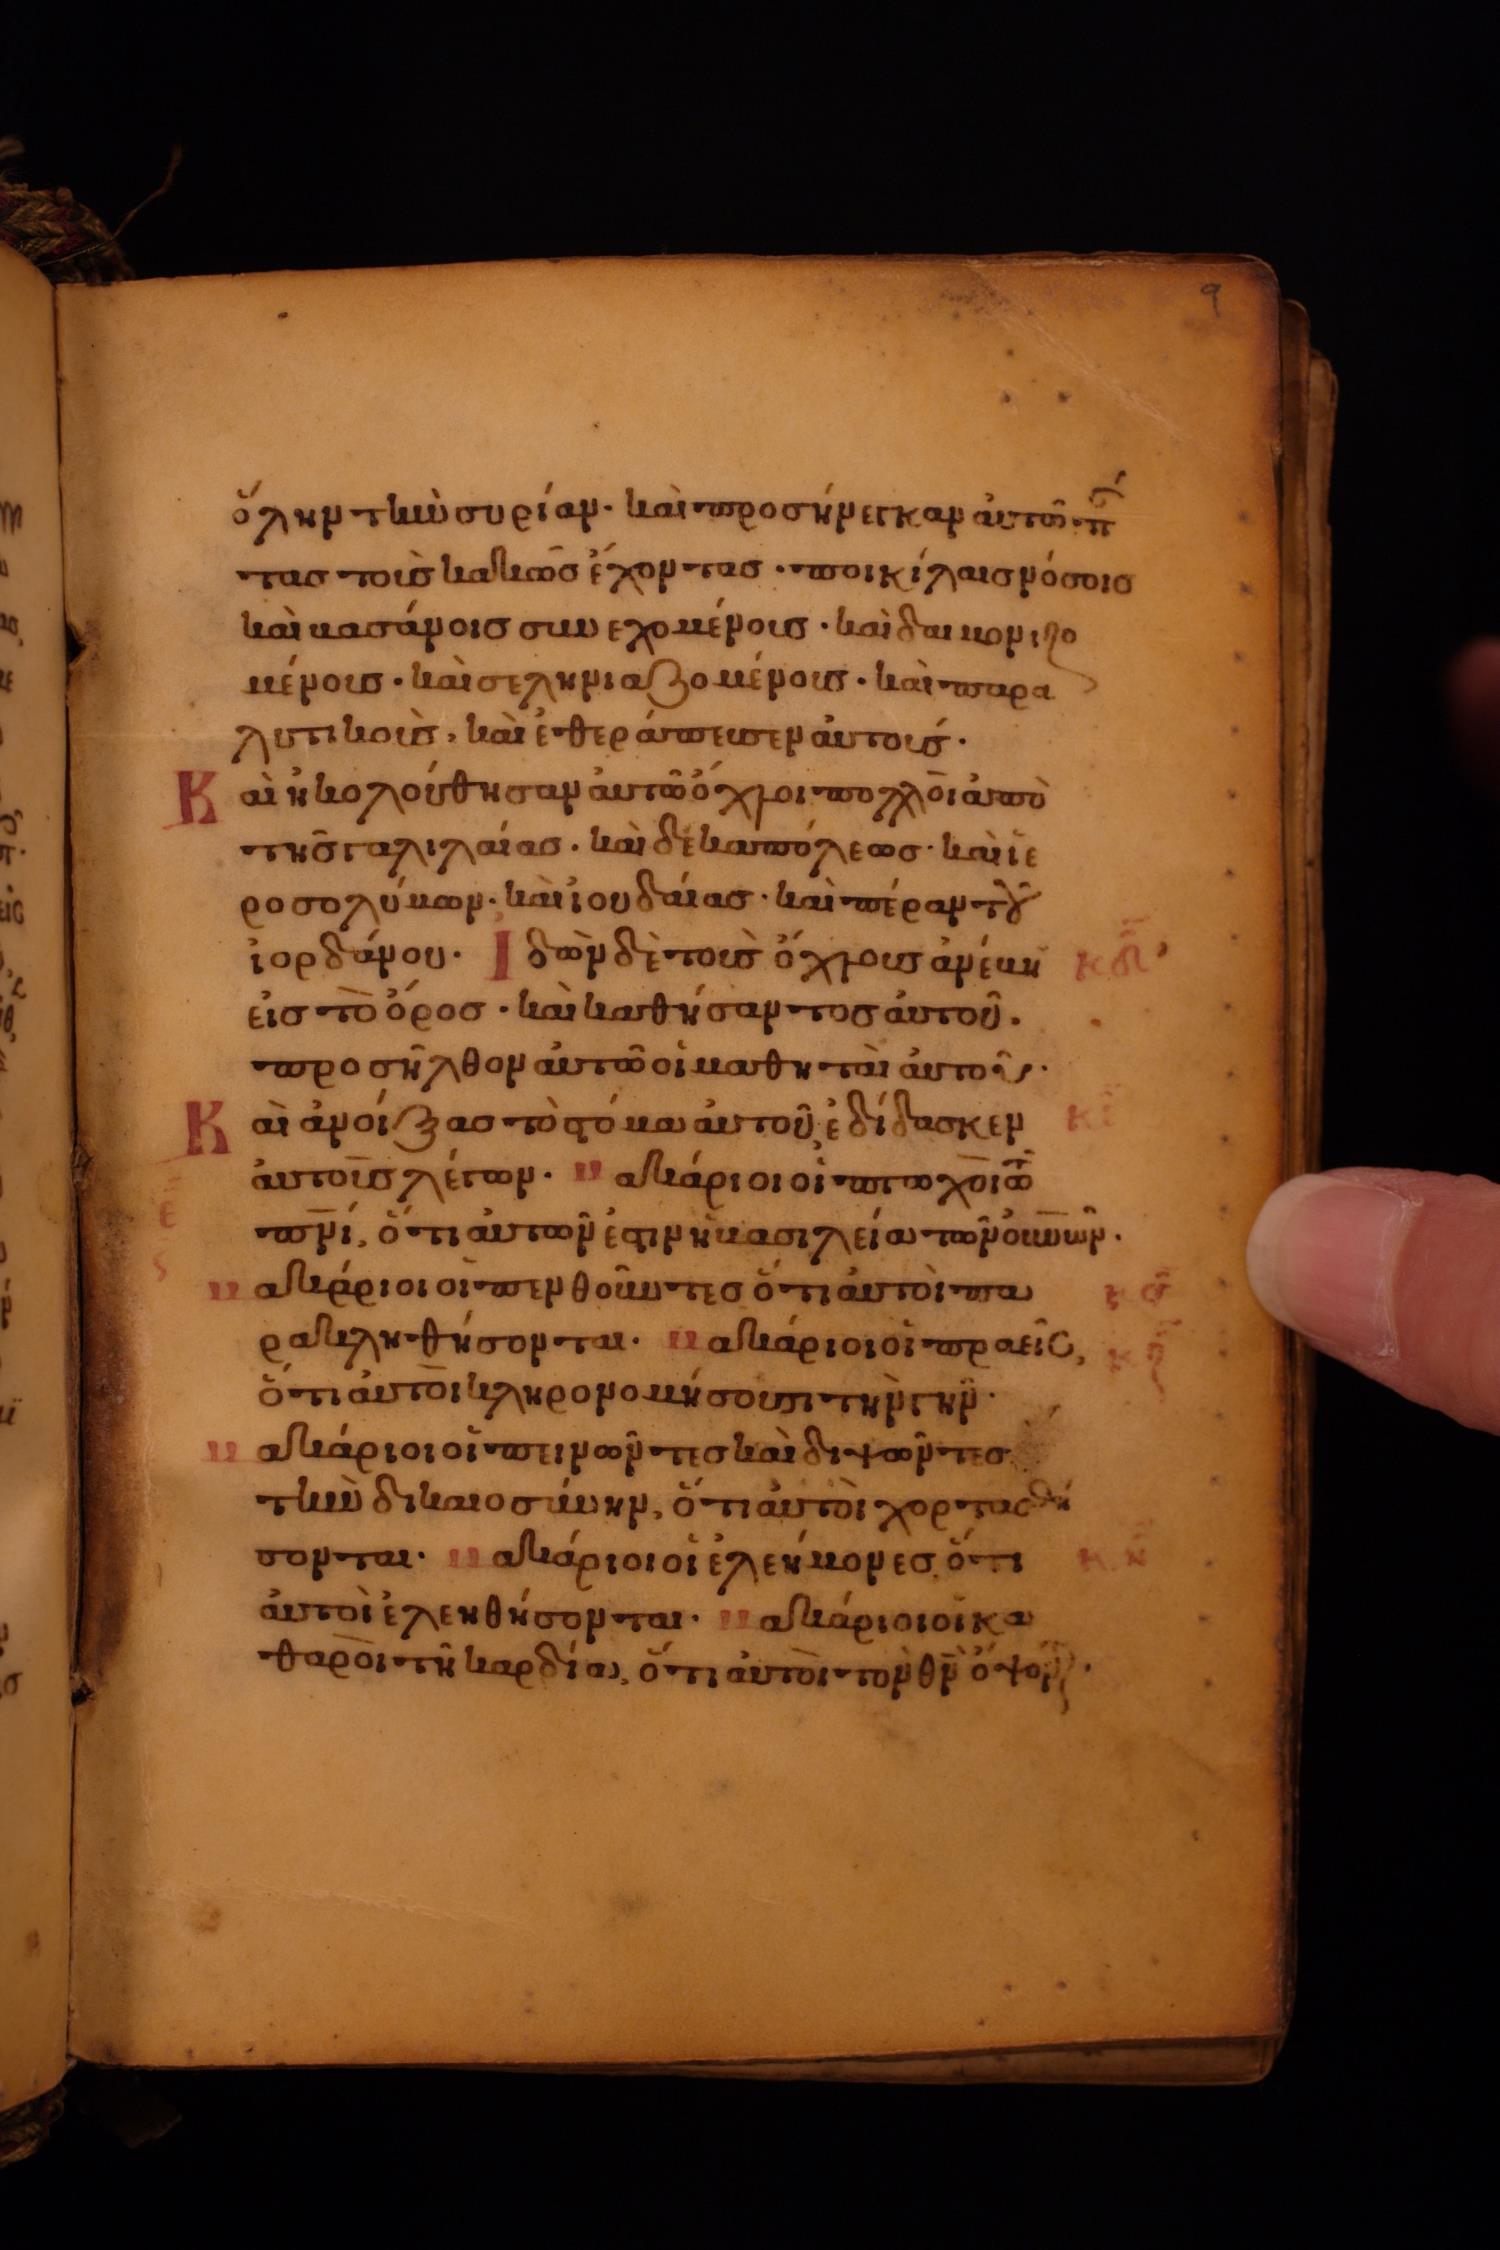 9
ὅλην τὴν συρίαν· καὶ προσήνεγκαν αὐτῶ π
τας τοὺς κακῶς ἔχοντας · ποικίλαις νόσοις
καὶ βασάνοις συνεχομένους · καὶ δαιμονιζο
μένους · καὶ σεληνιαζομένους · καὶ παρα
λυτικοὺς, καὶ ἐθεράπευσεν αὐτούς ·
Καὶ ἠκολούθησαν αὐτῶ ὄχλοι πολλοὶ ἀπὸ
τῆς γαλιλαίας · καὶ δεκαπόλεως · καὶ ἱε
ροσολύμων · καὶ ἰουδαίας · καὶ πέραν τοῦ
ἰορδάνου · Ἰδὼν δὲ τοὺς ὄχλους ἀνέβη κδ
εἰς τὸ ὄρος · καὶ καθήσαντος αὐτοῦ ·
προσῆλθον αὐτῶ οἱ μαθηταὶ αὐτοῦ ·
Καὶ ἀνοίξας τὸ στόμα αὐτοῦ, ἐδίδασκεν
αὐτοὺς λέγων · Μακάριοι οἱ πτωχοὶ τῶ
πνι, ὅτι αὐτῶν ἐστιν ἡ βασιλεία τῶν οὐνῶν ·
Μακάριοι οἱ πενθοῦντες ὅτι αὐτοὶ πα
ρακληθήσονται · Μακάριοι οἱ πραεῖς,
ὅτι αὐτοὶ κληρονομήσουσι τὴν γῆν ·
Μακάριοι οἱ πεινῶντες καὶ διψῶντες
τὴν δικαιοσύνην, ὅτι αὐτοὶ χορτασθή
σονται · Μακάριοι οἱ ἐλεήμονες, ὅτι
αὐτοὶ ἐλεηθήσονται · Μακάριοι οἱ κα
θαροὶ τῆ καρδία, ὅτι αὐτοὶ τὸν θν ὄψον ·